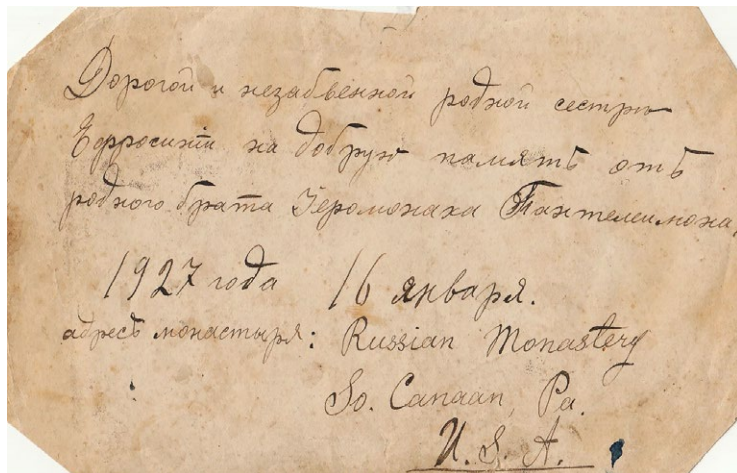 Дорогой и незабвенной родной сестрѣ
Ефросиніи на добрую память отъ
родного брата Іеромонаха Пантелеимона.
1927 года 16 января.
адресъ монастыря: Russian Monastery
So. Canaan, Pa.
U. S. A.